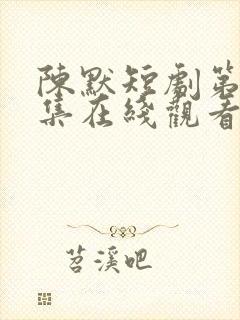 陳默短劇第
集在綫觀看
苕溪吧